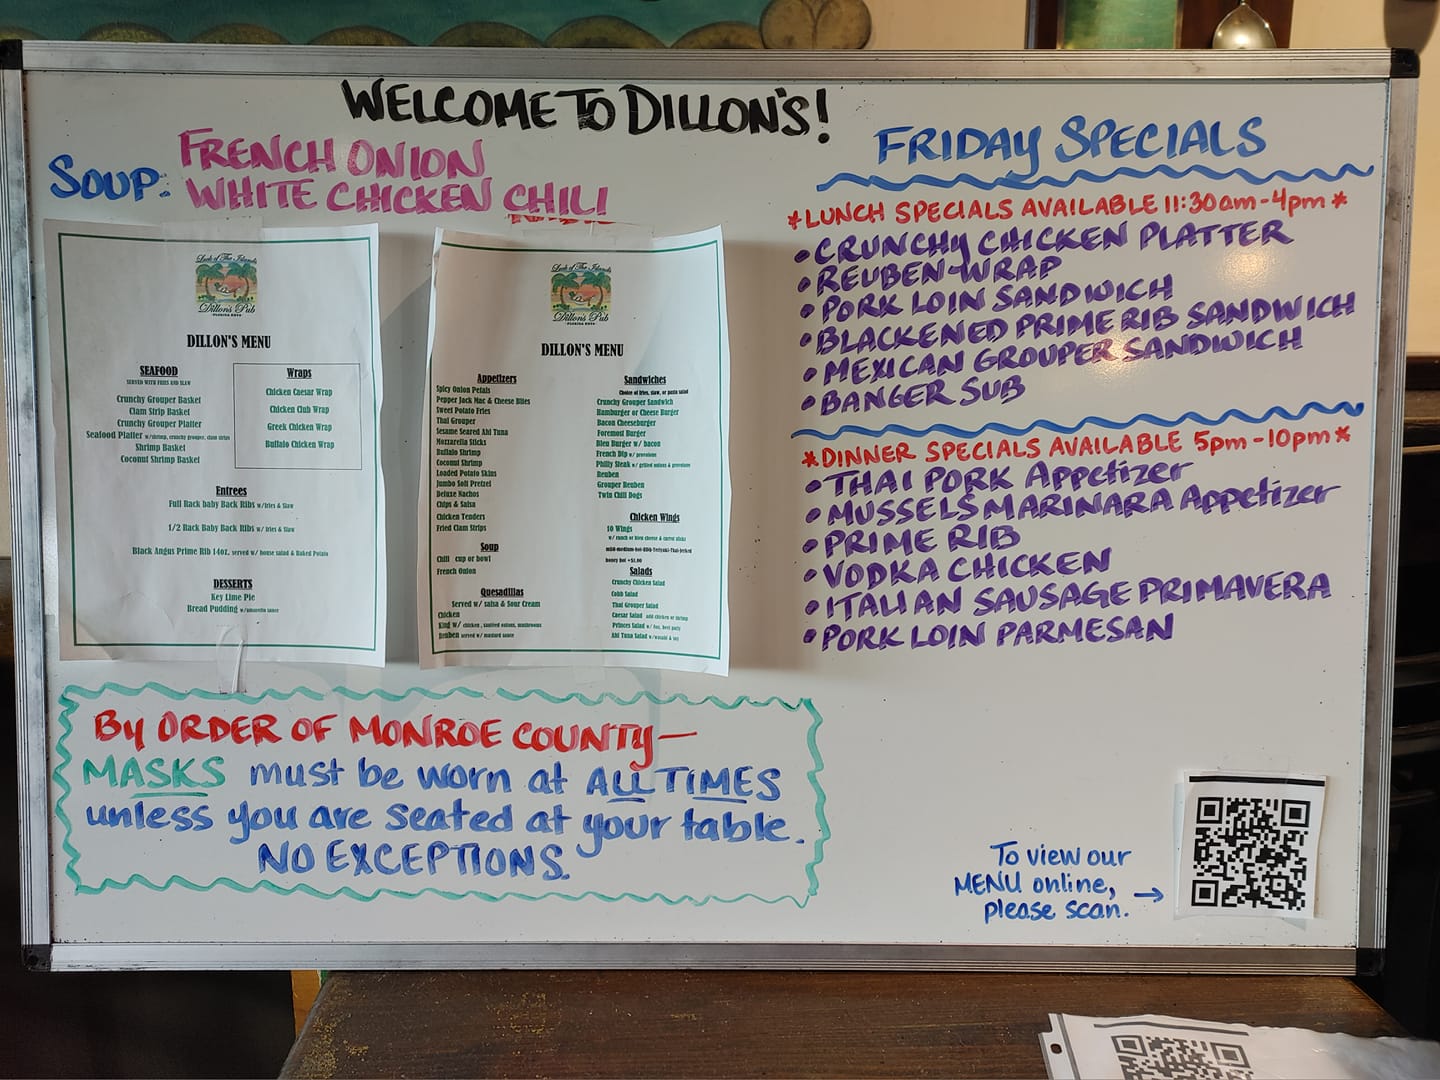 WELCOME TO DILLON'S!
SOUP: FRENCH ONION
WHITE CHICKEN CHILI
Luck of The Islands
Dillon's Pub
FLORIDA KEYS
DILLON'S MENU
SEAFOOD
SERVED WITH FRIES AND SLAW
Crunchy Grouper Basket
Clam Strip Basket
Crunchy Grouper Platter
Seafood Platter w/shrimp, crunchy grouper, clam strips
Shrimp Basket
Coconut Shrimp Basket
Wraps
Chicken Caesar Wrap
Chicken Club Wrap
Greek Chicken Wrap
Buffalo Chicken Wrap
Entrees
Full Rack baby Back Ribs w/fries & Slaw
1/2 Rack Baby Back Ribs w/ fries & Slaw
Black Angus Prime Rib 14oz, served w/ house salad & Baked Potato
DESSERTS
Key Lime Pie
Bread Pudding w/amaretto sauce
Luck of The Islands
Dillon's Pub
FLORIDA KEYS
DILLON'S MENU
Appetizers
Spicy Onion Petals
Pepper Jack Mac & Cheese Bites
Sweet Potato Fries
Thai Grouper
Sesame Seared Ahi Tuna
Mozzarella Sticks
Buffalo Shrimp
Coconut Shrimp
Loaded Potato Skins
Jumbo Soft Pretzel
Deluxe Nachos
Chips & Salsa
Chicken Tenders
Fried Clam Strips
Soup
Chili cup or bowl
French Onion
Quesadillas
Served w/ salsa & Sour Cream
Chicken
King w/ chicken, sautéed onions, mushrooms
Reuben served w/ mustard sauce
Sandwiches
Choice of fries, slaw, or pasta salad
Crunchy Grouper Sandwich
Hamburger or Cheese Burger
Bacon Cheeseburger
Foremost Burger
Bleu Burger w/ bacon
French Dip w/ provolone
Philly Steak w/ grilled onions & provolone
Reuben
Grouper Reuben
Twin Chili Dogs
Chicken Wings
10 Wings
w/ ranch or bleu cheese & carrot sticks
mild-medium-hot-BBQ-Teriyaki-Thai-Jerked
honey hot +$1.00
Salads
Crunchy Chicken Salad
Cobb Salad
Thai Grouper Salad
Caesar Salad add chicken or shrimp
Princes Salad
Ahi Tuna Salad w/wasabi & soy
FRIDAY SPECIALS
*LUNCH SPECIALS AVAILABLE 11:30am-4pm*
•CRUNCHY CHICKEN PLATTER
•REUBEN WRAP
•PORK LOIN SANDWICH
•BLACKENED PRIME RIB SANDWICH
•MEXICAN GROUPER SANDWICH
•BANGER SUB
*DINNER SPECIALS AVAILABLE 5pm-10pm*
•THAI PORK Appetizer
•MUSSELS MARINARA Appetizer
•PRIME RIB
•VODKA CHICKEN
•ITALIAN SAUSAGE PRIMAVERA
•PORK LOIN PARMESAN
By ORDER OF MONROE COUNTY—
MASKS must be worn at ALL TIMES
unless you are seated at your table.
NO EXCEPTIONS.
To view our
MENU online, →
please scan.